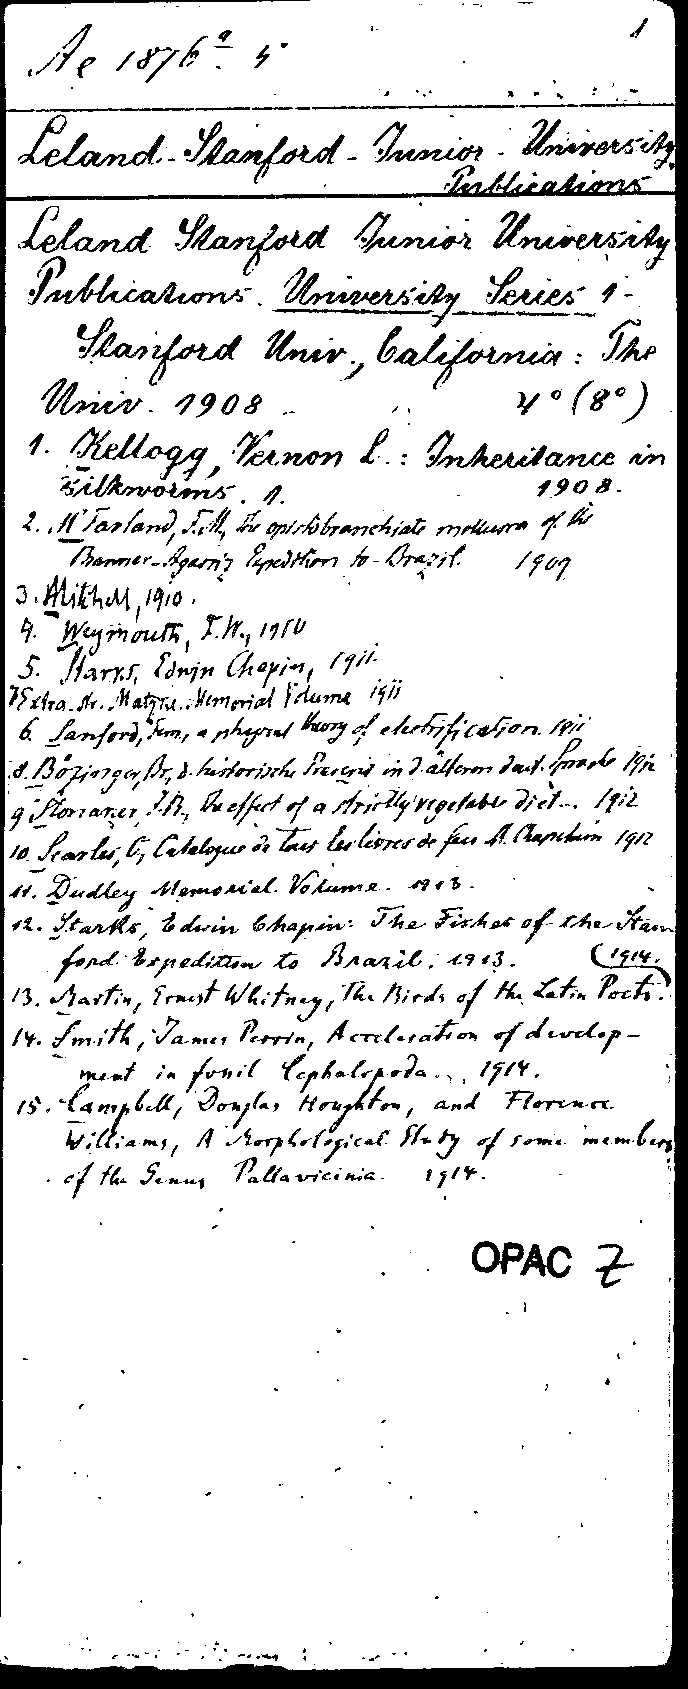 1
Ae 1876ª. 5
Leland-Stanford-Junior-University
Publications
Leland Stanford Junior University
Publications. University Series 1-
Stanford Univ., California: The
Univ. 1908 4° (8°)
1. Kellogg, Vernon L.: Inheritance in
silkworms. 1. 1908.
2. McFarland, F.M., The opisthobranchiate mollusca of the
Banner-Agassiz Expedition to Brazil. 1909
3. Mitchell, 1910.
4. Weymouth, F.W., 1910
5. Starks, Edwin Chapin, 1911.
Extra Nr. Memorial Volume 1911
6. Sanford, Fern., a physical theory of electrification. 1911
8. Bözinger, Br., d. historische Praesens in d. älteren deut. Sprache 1912
9 The effect of a strictly vegetable diet... 1912
10. Searles, C., Catalogue de Tous les livres de feu M. Chapelain 1912
11. Dudley Memorial Volume. 1913.
12. Starks, Edwin Chapin: The Fishes of the Stan
ford Expedition to Brazil. 1913.
(1914.
13. Martin, Ernest Whitney, The Birds of the Latin Poets.
14. Smith, James Perrin, Acceleration of develop-
ment in fossil Cephalopoda. 1914.
15. Campbell, Douglas Houghton, and Florence
Williams, A Morphological Study of some members
of the Genus Pallavicinia. 1914.
OPAC Z